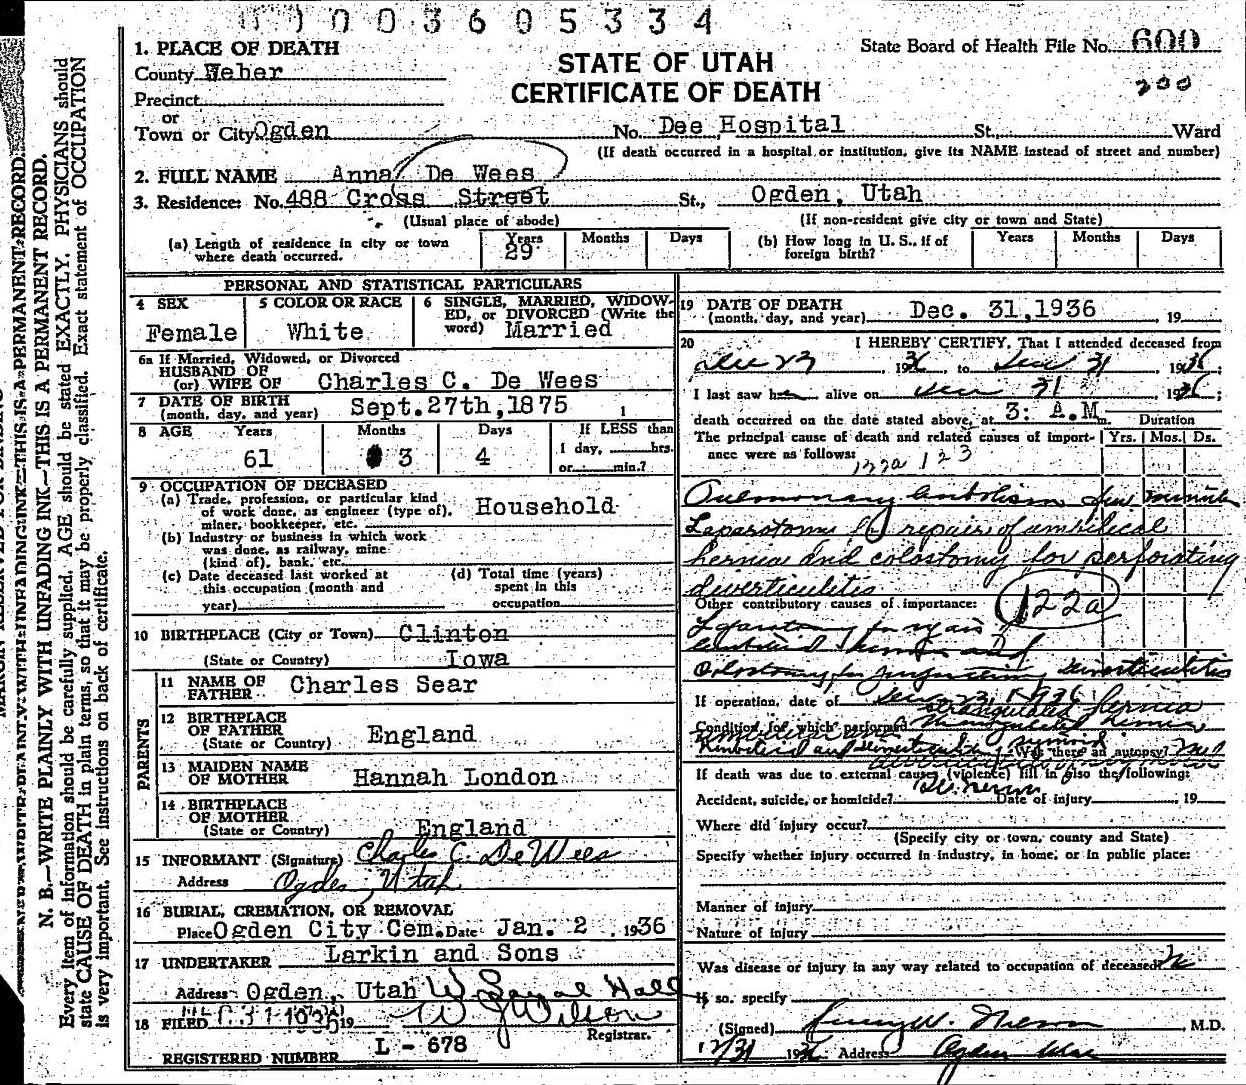 0003605334
1. PLACE OF DEATH
County Weber
STATE OF UTAH
CERTIFICATE OF DEATH
State Board of Health File No. 600
200
Precinct
or
Town or City Ogden No. Dee Hospital St., Ward
(If death occurred in a hospital or institution, give its NAME instead of street and number)
2. FULL NAME Anna De Wees
3. Residence: No. 488 Cross Street St., Ogden, Utah
(Usual place of abode) (If non-resident give city or town and State)
(a) Length of residence in city or town where death occurred. Years 29 Months Days
(b) How long in U. S., if of foreign birth? Years Months Days
PERSONAL AND STATISTICAL PARTICULARS
4 SEX Female
5 COLOR OR RACE White
6 SINGLE, MARRIED, WIDOWED, or DIVORCED (Write the word) Married
6a If Married, Widowed, or Divorced
HUSBAND OF
(or) WIFE OF Charles C. De Wees
7 DATE OF BIRTH
(month, day, and year) Sept. 27th, 1875
8 AGE Years Months Days If LESS than
61 3 4 1 day, hrs.
or min.?
9 OCCUPATION OF DECEASED
(a) Trade, profession, or particular kind
of work done, as engineer (type of), Household
miner, bookkeeper, etc.
(b) Industry or business in which work
was done, as railway, mine
(kind of), bank, etc.
(c) Date deceased last worked at
this occupation (month and
year)
(d) Total time (years)
spent in this
occupation
10 BIRTHPLACE (City or Town) Clinton
(State or Country) Iowa
PARENTS
11 NAME OF
FATHER Charles Sear
12 BIRTHPLACE
OF FATHER
(State or Country) England
13 MAIDEN NAME
OF MOTHER Hannah London
14 BIRTHPLACE
OF MOTHER
(State or Country) England
15 INFORMANT (Signature) Charles C. De Wees
Address Ogden, Utah
16 BURIAL, CREMATION, OR REMOVAL
Place Ogden City Cem. Date Jan. 2, 1936
17 UNDERTAKER Larkin and Sons
Address Ogden, Utah
18 FILED 19
Registrar.
REGISTERED NUMBER L-678
19 DATE OF DEATH
(month, day, and year) Dec. 31, 1936 19
20 I HEREBY CERTIFY, That I attended deceased from
Dec 23, 1936, to Dec 31, 1936;
I last saw her alive on Dec 31, 1936;
death occurred on the date stated above, at 3: A.M. m.
Duration
The principal cause of death and related causes of importance were as follows: Yrs. Mos. Ds.
122a 123
Pulmonary Embolism few minutes
Laparotomy for repair of umbilical
hernia and colostomy for perforating
diverticulitis
Other contributory causes of importance:
122a
Laparotomy for repair
umbilical hernia and
Colostomy for perforating diverticulitis
If operation, date of Dec 23, 1936
strangulated hernia
Condition for which performed strangulated hernia
Was there an autopsy?
If death was due to external causes (violence) fill in also the following:
Accident, suicide, or homicide? Date of injury , 19
Where did injury occur?
(Specify city or town, county and State)
Specify whether injury occurred in industry, in home, or in public place:
Manner of injury
Nature of injury
Was disease or injury in any way related to occupation of deceased?
If so, specify
(Signed) M.D.
12/31 1936 Address Ogden Utah
N. B.—WRITE PLAINLY WITH UNFADING INK—THIS IS A PERMANENT RECORD.
Every item of information should be carefully supplied. AGE should be stated EXACTLY. PHYSICIANS should
state CAUSE OF DEATH in plain terms, so that it may be properly classified. Exact statement of OCCUPATION
is very important. See instructions on back of certificate.